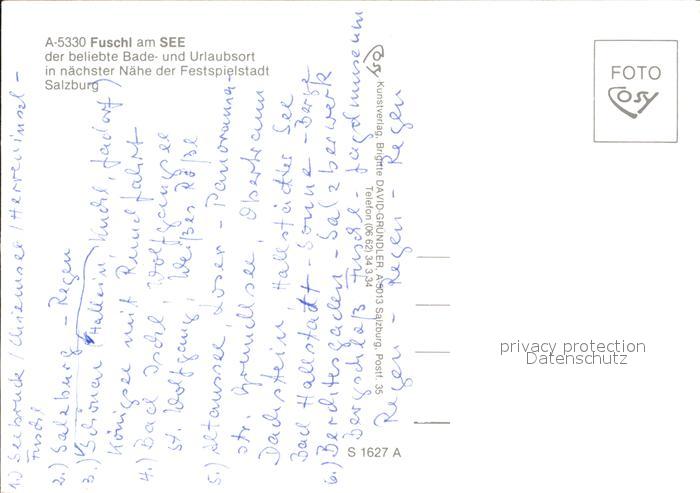 A-5330 Fuschl am SEE
der beliebte Bade- und Urlaubsort
in nächster Nähe der Festspielstadt
Salzburg
FOTO
Cosy
Cosy Kunstverlag, Brigitte DAVID-GRÜNDLER, A-5013 Salzburg, Postf. 35
Telefon (06 62) 34 3 34
S 1627 A
privacy protection
Datenschutz
1.) Seebruck / Chiemsee / Herreninsel -
Fuschl
2.) Salzburg - Regen
3.) Schönau (Hallein, Kuchl,
Königsee mit Rundfahrt
4.) Bad Ischl, Wolfgangsee
St. Wolfgang, Weißes Rößl
5.) Altaussee, Loser - Panorama-
str. Grundlsee, Obertraun
Dachstein, Hallstädter See
Bad Hallstatt - Sonne - Berge
6.) Berchtesgaden - Salzbergwerk
Fuschl - Jagdmuseum
Regen - Regen - Regen